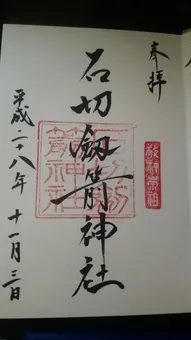 奉拝
石切劔箭神社
平成二十八年 十一月三日
敬神崇祖
石切劔箭神社